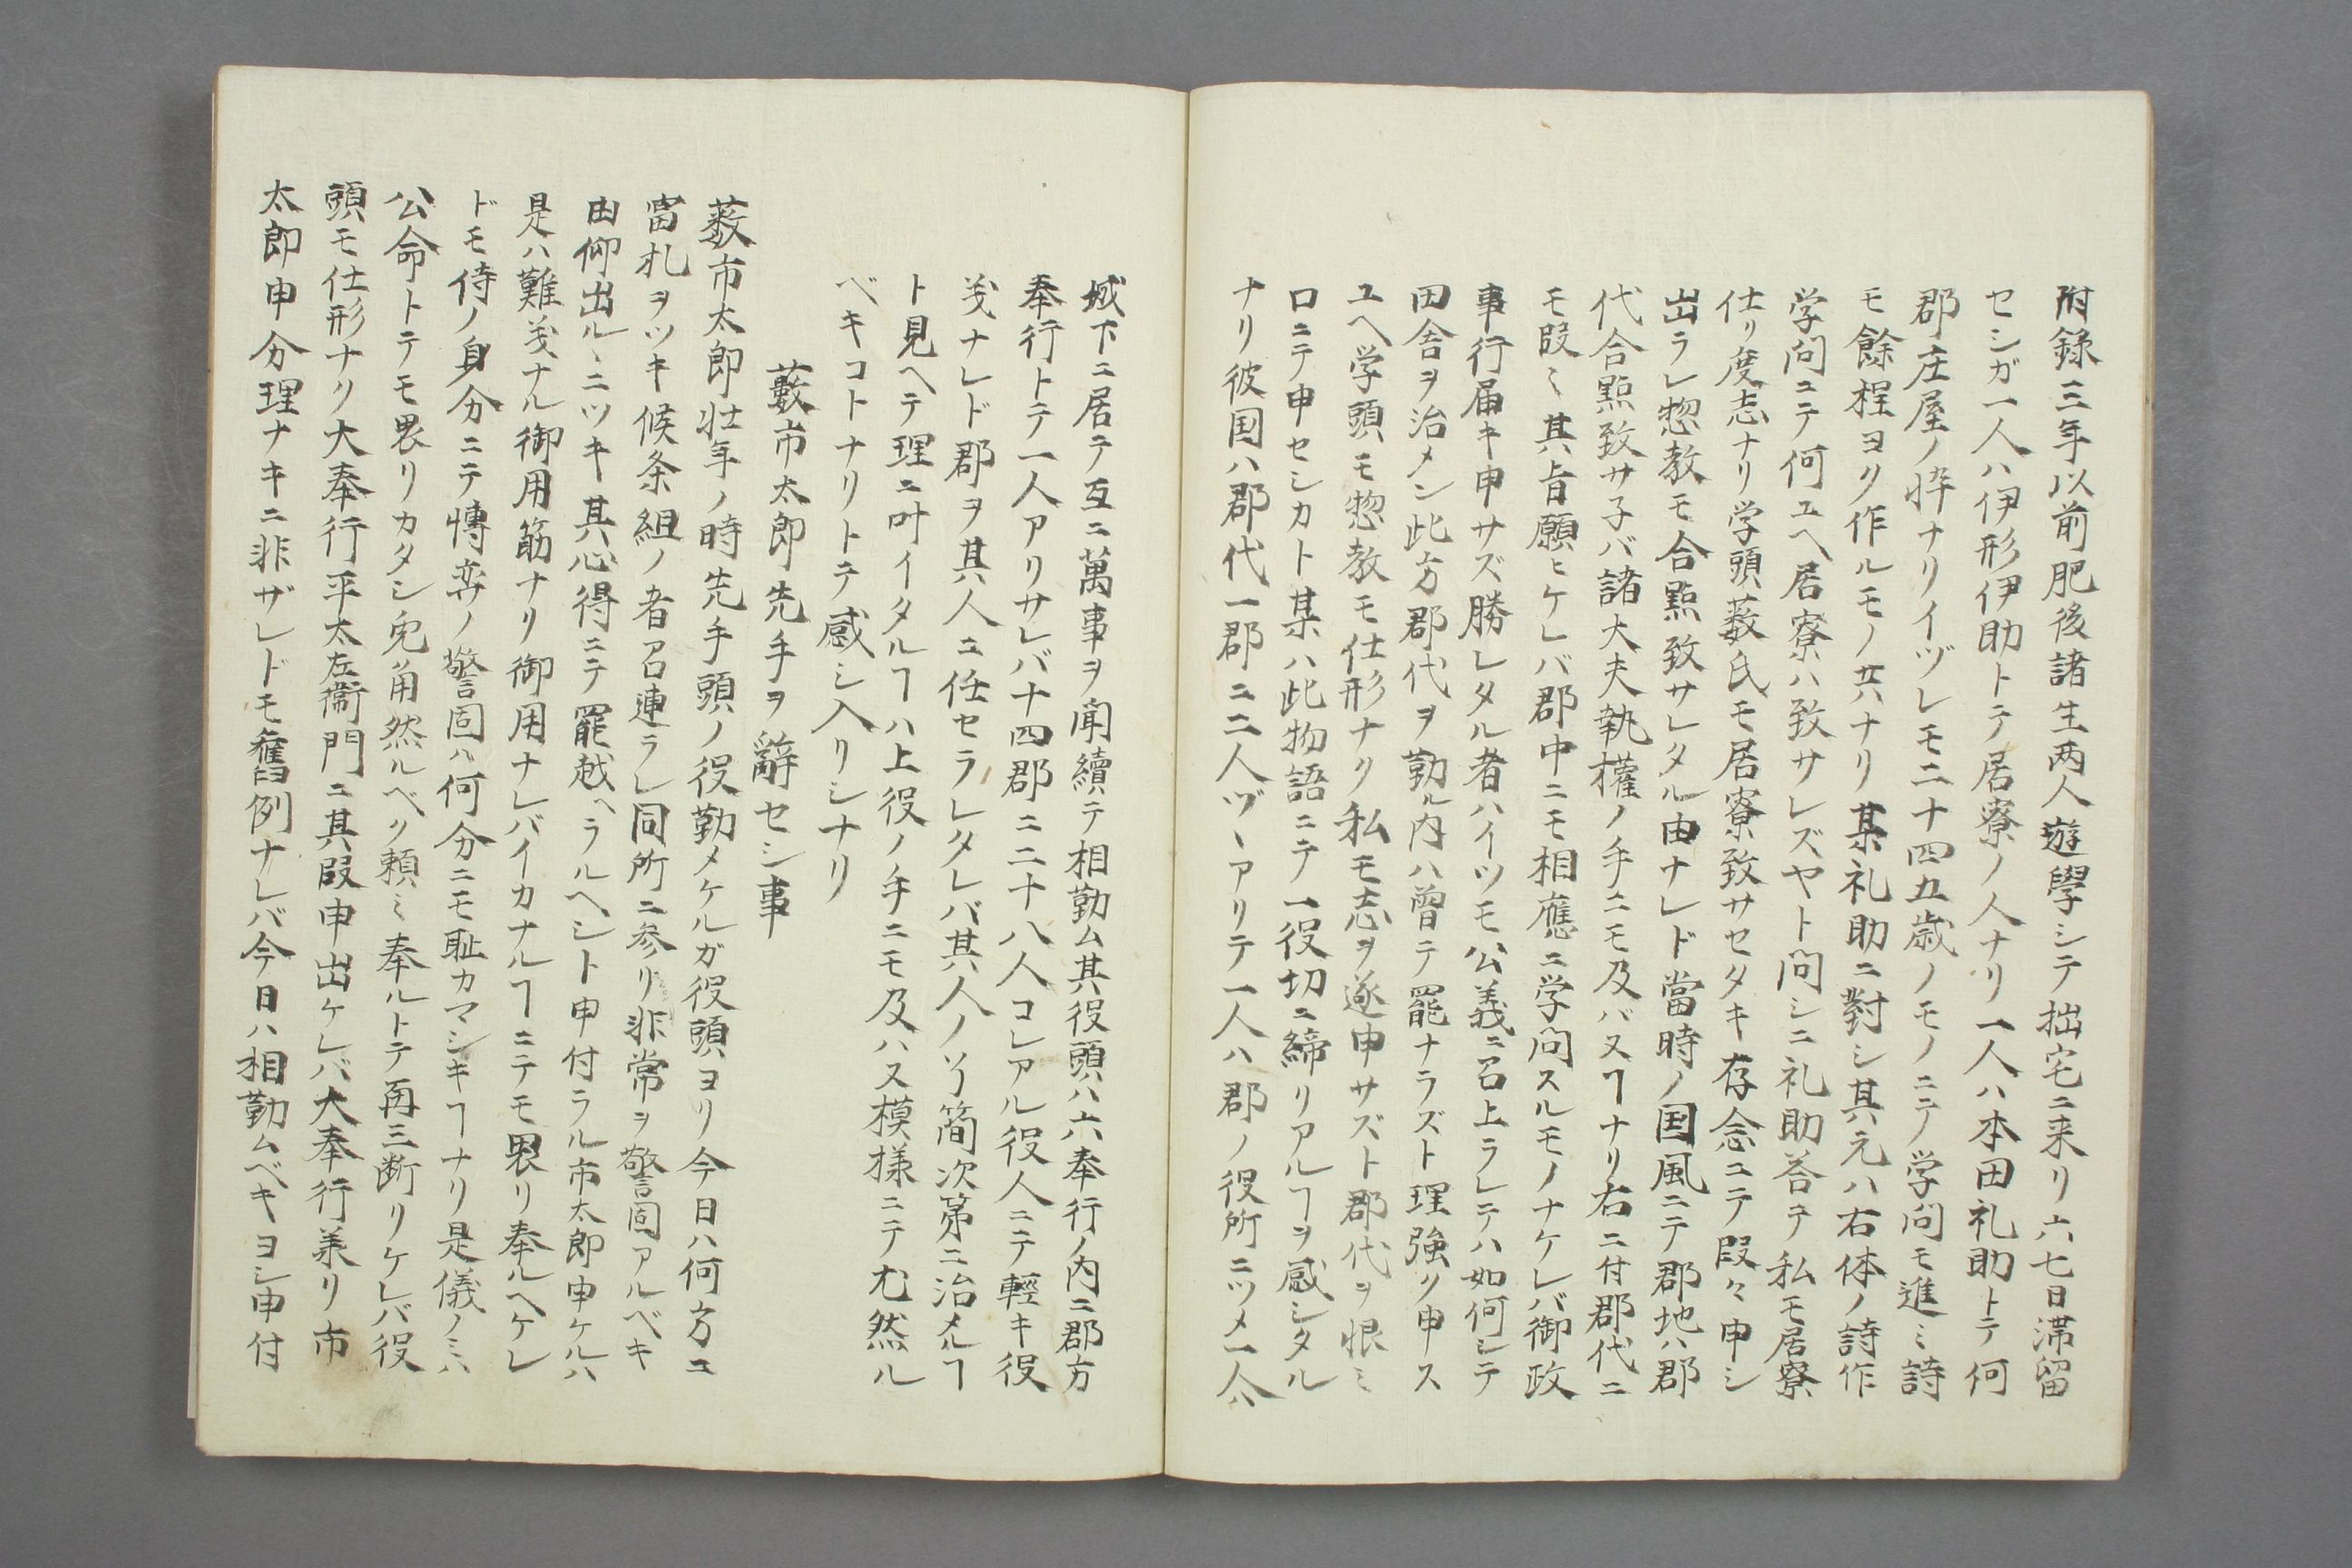 附録三年以前肥後諸生两人遊學シテ拙宅ニ来リ六七日滞留
セシガ一人ハ伊形伊助トテ居寮ノ人ナリ一人ハ本田礼助トテ何
郡庄屋ノ悴ナリイヅレモ二十四五歳ノモノニテ学問モ進ミ詩
モ餘程ヨク作ルモノ共ナリ某礼助ニ對シ其元ハ右体ノ詩作
学問ニテ何ユヘ居寮ハ致サレズヤト問シニ礼助荅テ私モ居寮
仕リ度志ナリ学頭藪氏モ居寮致サセタキ存念ニテ段々申シ
出ラレ惣教モ合點致サレタル由ナレド當時ノ国風ニテ郡地ハ郡
代合點致サ子バ諸大夫執權ノ手ニモ及バヌヿナリ右ニ付郡代ニ
モ段〻其旨願ヒケレバ郡中ニモ相應ニ学問スルモノナケレバ御政
事行届キ申サズ勝レタル者ハイツモ公義ニ召上ラレテハ如何シテ
田舎ヲ治メン此方郡代ヲ勤ル内ハ曽テ罷ナラズト理強ク申ス
ユヘ学頭モ惣教モ仕形ナク私モ志ヲ遂申サズト郡代ヲ恨ミ
口ニテ申セシカト某ハ此物語ニテ一役切ニ締リアルヿヲ感シタル
ナリ彼国ハ郡代一郡ニ二人ヅヽアリテ一人ハ郡ノ役所ニツメ一人ハ
城下ニ居テ互ニ萬事ヲ聞續テ相勤ム其役頭ハ六奉行ノ内ニ郡方
奉行トテ一人アリサレバ十四郡ニ二十八人コレアル役人ニテ輕キ役
义ナレド郡ヲ其人ニ任セラレタレバ其人ノ了簡次第ニ治メルヿ
ト見ヘテ理ニ叶イタルヿハ上役ノ手ニモ及ハヌ模様ニテ尤然ル
ベキコトナリトテ感シ入リシナリ
藪市太郎先手ヲ辭セシ事
藪市太郎壮年ノ時先手頭ノ役勤メケルガ役頭ヨリ今日ハ何方ヱ
富札ヲツキ候条組ノ者召連ラレ同所ニ参リ非常ヲ警固アルベキ
由仰出ルヽニツキ其心得ニテ罷越ヘラルヘシト申付ラル市太郎申ケルハ
是ハ難义ナル御用筋ナリ御用ナレバイカナルヿニテモ畏リ奉ルヘケレ
ドモ侍ノ身分ニテ慱奕ノ警固ハ何分ニモ耻カマシキヿナリ是儀ノミハ
公命トテモ畏リカタシ兎角然ルベク頼ミ奉ルトテ再三断リケレバ役
頭モ仕形ナク大奉行平太左衛門ニ其段申出ケレバ大奉行美リ市
太郎申分理ナキニ非ザレドモ舊例ナレバ今日ハ相勤ムベキヨシ申付